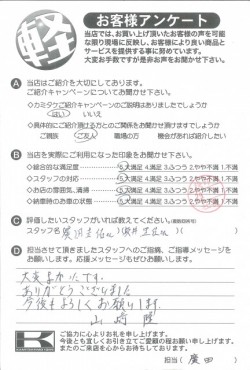 軽
お客様アンケート
当店では、お買い上げ頂いたお客様の声を可能
な限り現場に反映し、お客様により良い商品と
サービスを提供する事に努めています。
大変お手数ですが是非お声をお聞かせ下さい。
A 当店はご紹介を大切にしております。
ご紹介キャンペーンについてお聞かせ下さい。
◇カミタケご紹介キャンペーンのご説明はありましたでしょうか
はい いいえ
◇具体的にご紹介頂ける方とのご関係をお聞かせ頂けますでしょうか
ご親族 ご友人 職場の方 機会があれば紹介したい
B 当店を実際にご利用になった印象をお聞かせ下さい。
◇総合的な満足度 5.大満足 4.満足 3.ふつう 2.やや不満 1.不満
◇スタッフの対応 5.大満足 4.満足 3.ふつう 2.やや不満 1.不満
◇お店の雰囲気、清掃 5.大満足 4.満足 3.ふつう 2.やや不満 1.不満
◇納車時のお車の状態 5.大満足 4.満足 3.ふつう 2.やや不満 1.不満
C 評価したいスタッフがいれば教えてください。(複数回答可)
スタッフ名
D 担当させて頂きましたスタッフへのご指摘、ご指導メッセージを
お願いします。応援メッセージもぜひお願いします。
大変よかったです。
ありがとうございました
今後もよろしくお願いします。
山崎
K
ご協力に心よりお礼を申し上げます。
今後とも宜しくお引き立てご愛顧の程お願い申し上げます。
またのご来店を心よりお待ちしております。
担当( 慶田 )